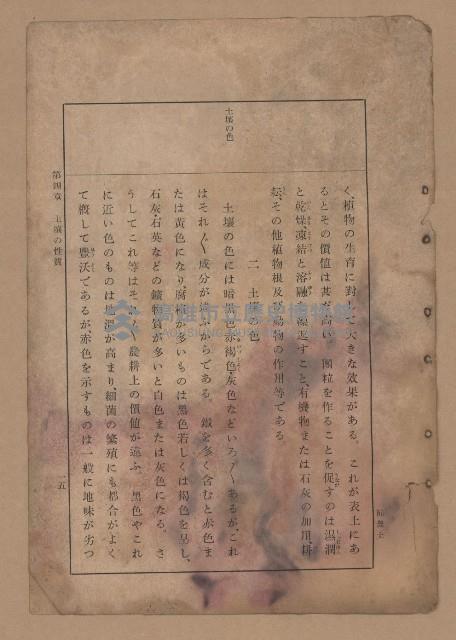 土壤の色
く、植物の生育に對して大きな效果がある。これが表土にあ
るとその價値は甚だ高い。團粒を作ることを促すのは濕潤
と乾燥、凍結と溶融を繰返すこと、有機物または石灰の加用、耕
耘、その他植物根及び動物の作用等である。
二 土壤の色
土壤の色には暗黑色、赤褐色、灰色などいろ〳〵あるが、これ
はそれ〴〵成分が違ふからである。鐵を多く含むと赤色ま
たは黃色になり、腐植が多いものは黑色若しくは褐色を呈し、
石灰、石英などの鑛物質が多いと白色または灰色になる。さ
うしてこれ等はそれ〴〵農耕上の價値が違ふ。黑色やこれ
に近い色のものは地溫が高まり、細菌の繁殖にも都合がよく
て槪して肥沃であるが、赤色を示すものは一般に地味が劣つ
第四章 土壤の性質
一五
高雄市立歷史博物館